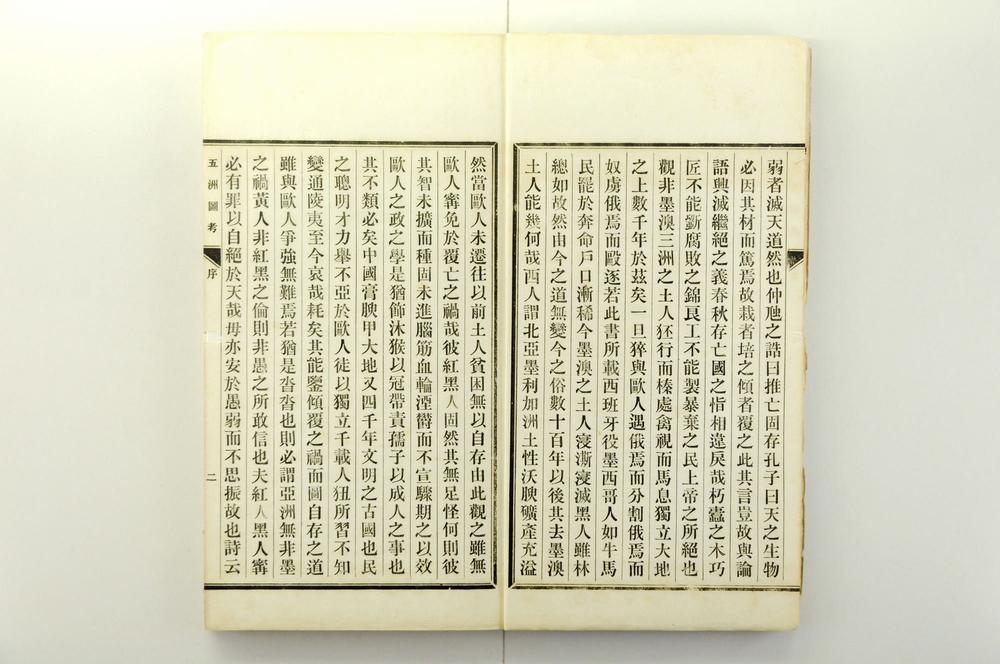 弱者滅天道然也仲虺之誥曰推亡固存孔子曰天之生物
必因其材而篤焉故栽者培之傾者覆之此其言豈故與論
語興滅繼絕之義春秋存亡國之恉相違戾哉朽蠹之木巧
匠不能斵腐敗之錦良工不能製暴棄之民上帝之所絕也
觀非墨澳三洲之土人狉行而榛處禽視而馬息獨立大地
之上數千年於茲矣一旦猝與歐人遇俄焉而分割俄焉而
奴虜俄焉而毆逐若此書所載西班牙役墨西哥人如牛馬
民罷於奔命戶口漸稀今墨澳之土人寖澌寖滅黑人雖林
總如故然由今之道無變今之俗數十百年以後其去墨澳
土人能幾何哉西人謂北亞墨利加洲土性沃腴礦產充溢
然當歐人未遷往以前土人貧困無以自存由此觀之雖無
歐人寗免於覆亡之禍哉彼紅黑人固然其無足怪何則彼
其智未擴而種固未進腦筋血輪湮鬱而不宣驟期之以效
歐人之政之學是猶飾沐猴以冠帶責孺子以成人之事也
其不類必矣中國膏腴甲大地又四千年文明之古國也民
之聰明才力舉不亞於歐人徒以獨立千載人狃所習不知
變通陵夷至今哀哉耗矣其能鑒傾覆之禍而圖自存之道
雖與歐人爭強無難焉若猶是沓沓也則必謂亞洲無非墨
之禍黃人非紅黑之倫則非愚之所敢信也夫紅人黑人寗
必有罪以自絕於天哉毋亦安於愚弱而不思振故也詩云
五洲圖考
序
二